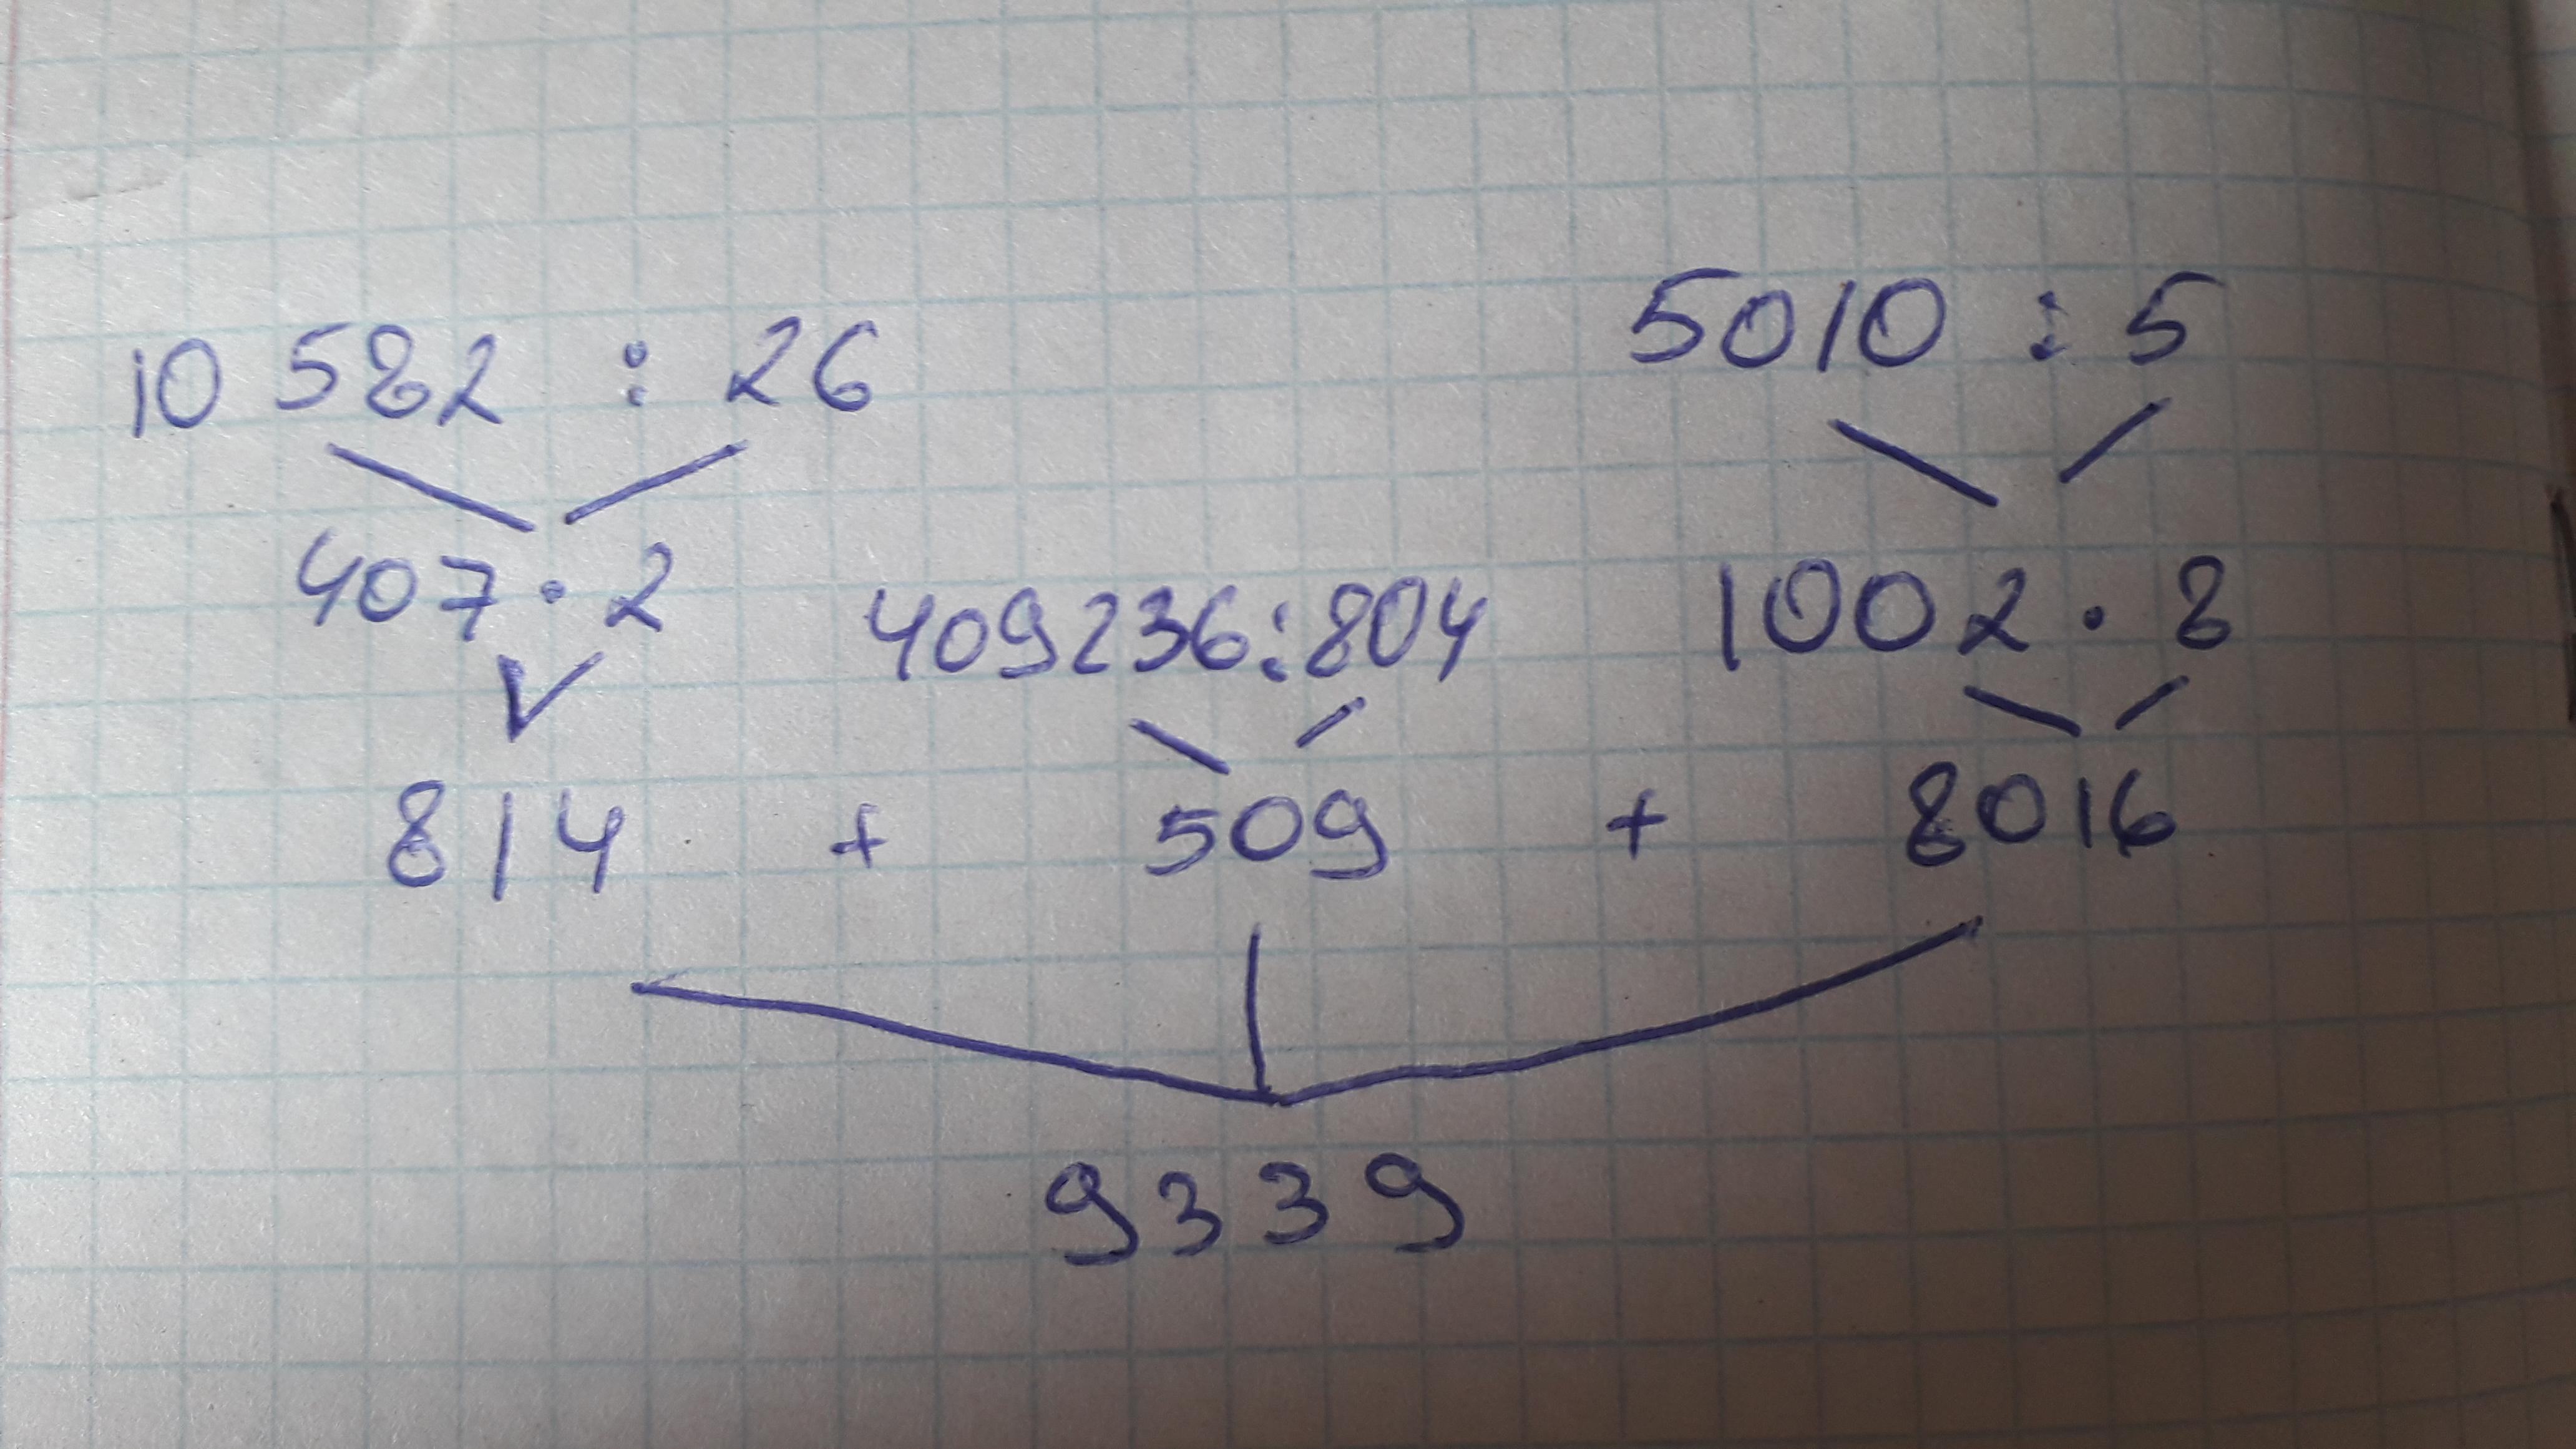 5010 : 5
10 582 : 26
407 · 2 409236:804 1002 · 8
814 + 509 + 8016
9339